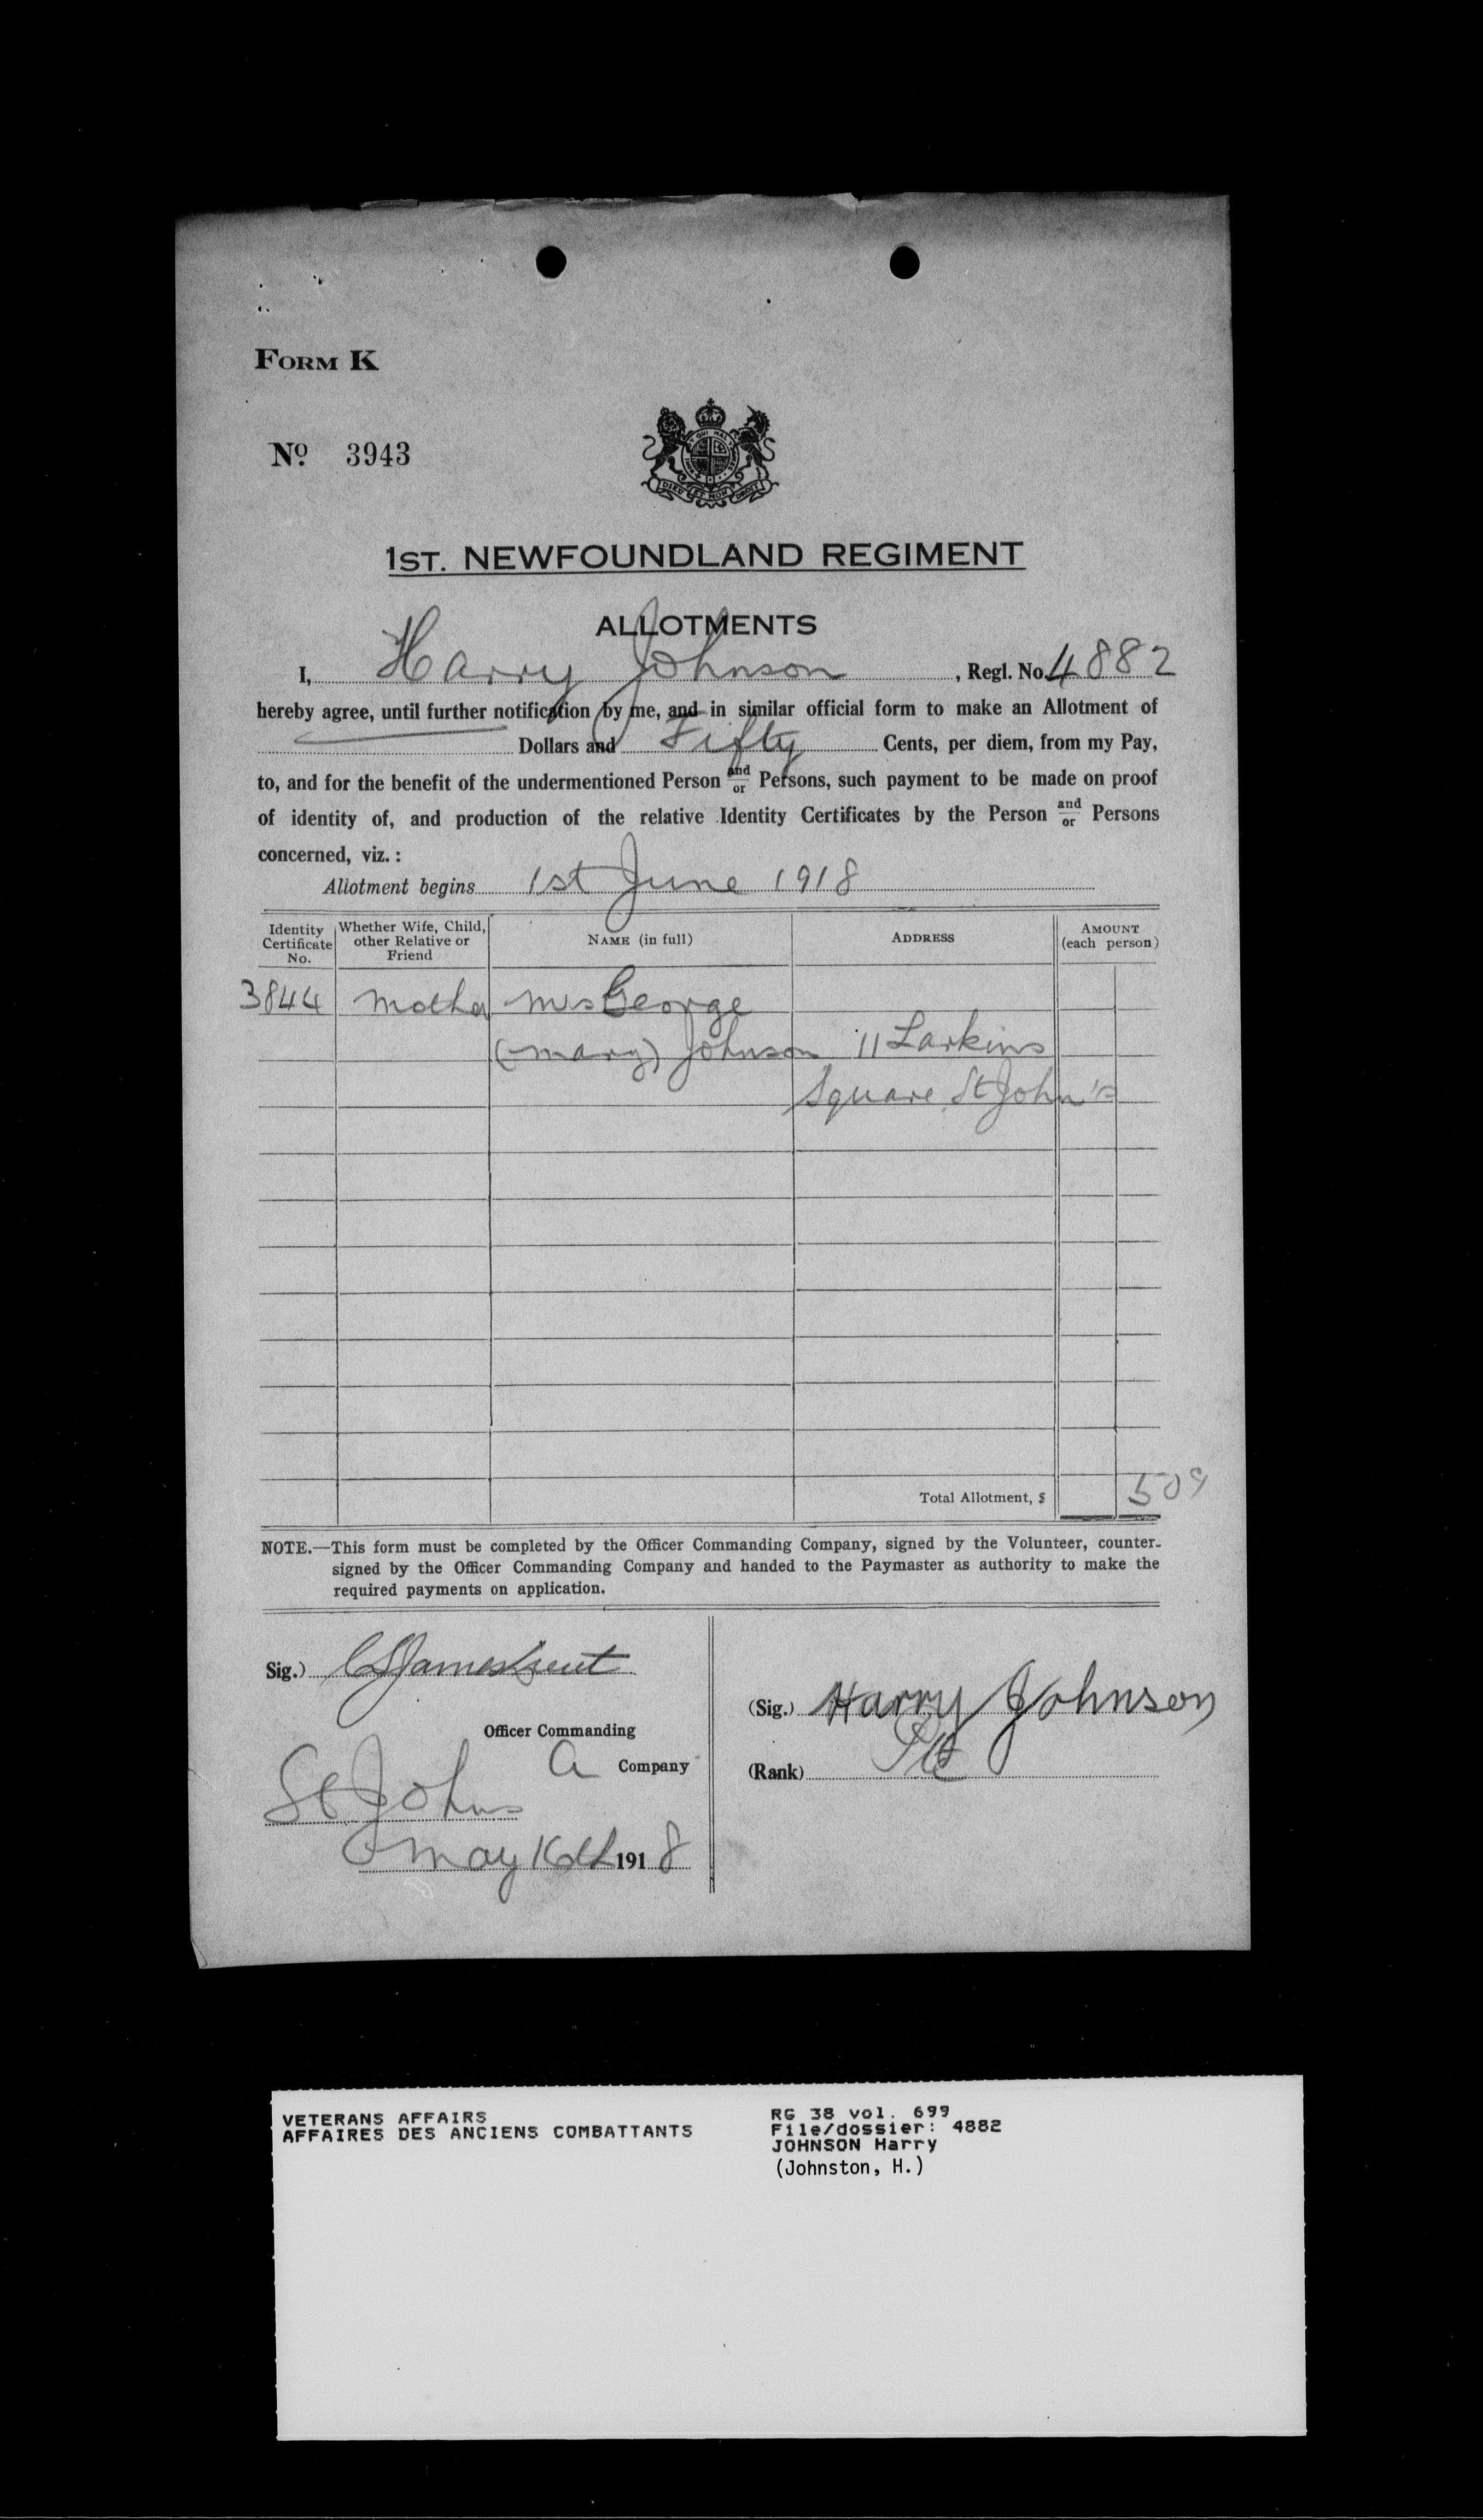 FORM K
No. 3943
1ST. NEWFOUNDLAND REGIMENT
ALLOTMENTS
I, Harry Johnson , Regl. No. 4882
hereby agree, until further notification by me, and in similar official form to make an Allotment of
Dollars and Fifty Cents, per diem, from my Pay,
to, and for the benefit of the undermentioned Person and/or Persons, such payment to be made on proof
of identity of, and production of the relative Identity Certificates by the Person and/or Persons
concerned, viz. :
Allotment begins 1st June 1918
Identity Certificate No. Whether Wife, Child, other Relative or Friend NAME (in full) ADDRESS AMOUNT (each person)
3844 Mother Mrs George
(Mary) Johnson 11 Larkins
Square St John's
Total Allotment, $ 50c
NOTE.—This form must be completed by the Officer Commanding Company, signed by the Volunteer, counter-
signed by the Officer Commanding Company and handed to the Paymaster as authority to make the
required payments on application.
Sig.) James Lieut
Officer Commanding
A Company
St Johns
May 16th 1918
(Sig.) Harry Johnson
(Rank) Pte
VETERANS AFFAIRS
AFFAIRES DES ANCIENS COMBATTANTS
RG 38 vol. 699
File/dossier: 4882
JOHNSON Harry
(Johnston, H.)